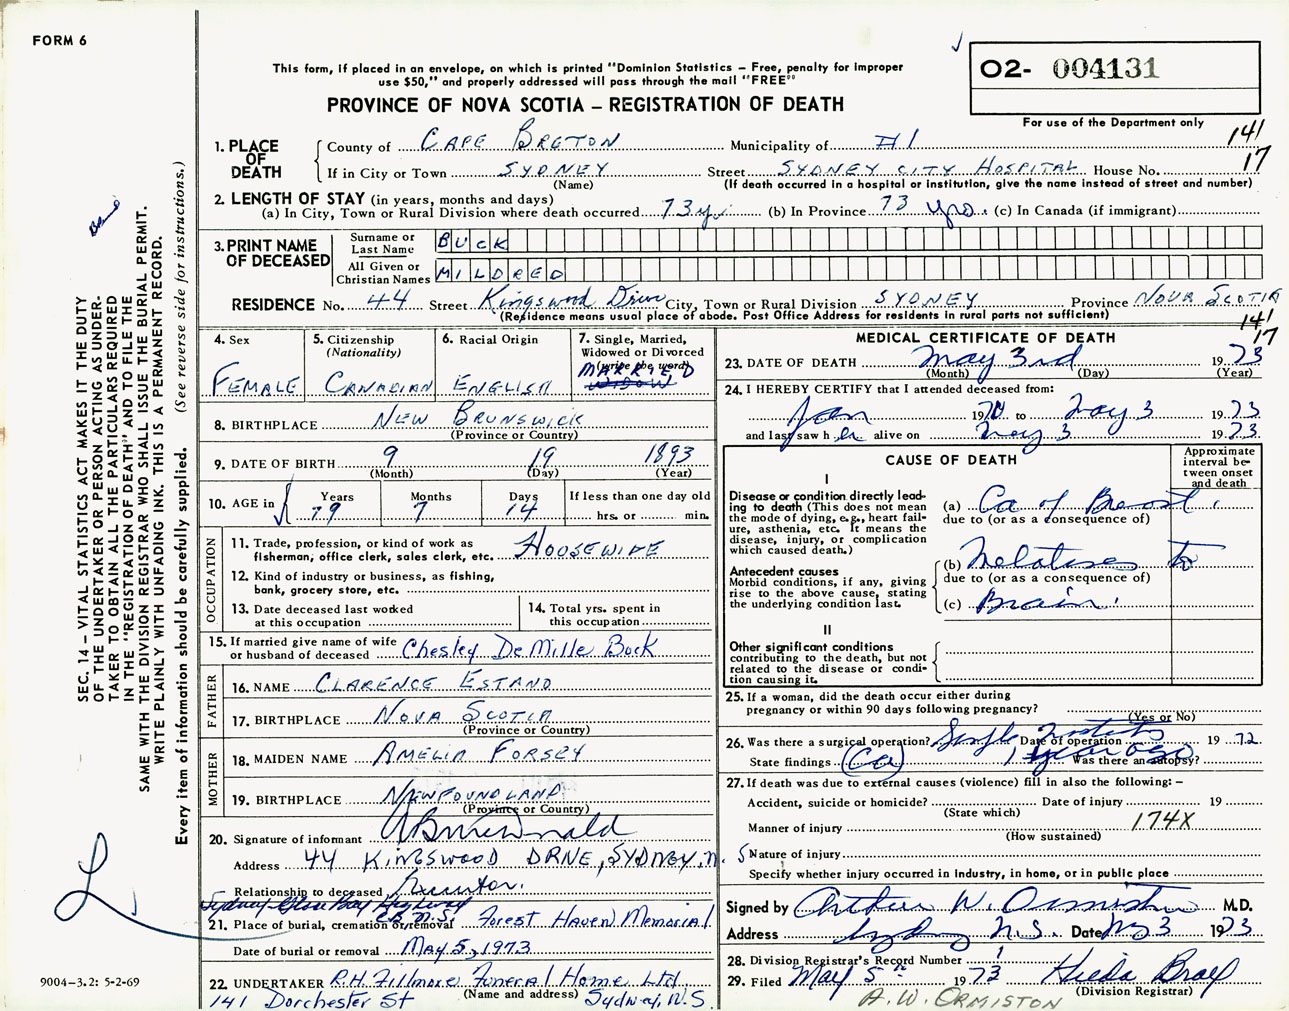 FORM 6
This form, if placed in an envelope, on which is printed "Dominion Statistics – Free, penalty for improper
use $50," and properly addressed will pass through the mail "FREE"
O2- 004131
For use of the Department only
PROVINCE OF NOVA SCOTIA – REGISTRATION OF DEATH
1. PLACE OF DEATH
County of CAPE BRETON Municipality of #1 141
If in City or Town SYDNEY Street SYDNEY CITY HOSPITAL House No. 17
(Name) (If death occurred in a hospital or institution, give the name instead of street and number)
2. LENGTH OF STAY (in years, months and days)
(a) In City, Town or Rural Division where death occurred 73 yr (b) In Province 73 yrs. (c) In Canada (if immigrant)
3. PRINT NAME OF DECEASED
Surname or Last Name BUCK
All Given or Christian Names MILDRED
RESIDENCE No. 44 Street Kingswood Drive City, Town or Rural Division SYDNEY Province NOVA SCOTIA
(Residence means usual place of abode. Post Office Address for residents in rural parts not sufficient)
141
17
4. Sex
FEMALE
5. Citizenship
(Nationality)
CANADIAN
6. Racial Origin
ENGLISH
7. Single, Married,
Widowed or Divorced
(write the word)
MARRIED
WIDOW
8. BIRTHPLACE NEW BRUNSWICK
(Province or Country)
9. DATE OF BIRTH 9 19 1893
(Month) (Day) (Year)
10. AGE in Years Months Days If less than one day old
79 7 14 hrs. or min.
OCCUPATION
11. Trade, profession, or kind of work as
fisherman, office clerk, sales clerk, etc. HOUSEWIFE
12. Kind of industry or business, as fishing,
bank, grocery store, etc.
13. Date deceased last worked
at this occupation
14. Total yrs. spent in
this occupation
15. If married give name of wife
or husband of deceased Chesley DeMille Buck
FATHER
16. NAME CLARENCE ESTANO
17. BIRTHPLACE NOVA SCOTIA
(Province or Country)
MOTHER
18. MAIDEN NAME AMELIA FORSEY
19. BIRTHPLACE NEWFOUNDLAND
(Province or Country)
20. Signature of informant
Address 44 KINGSWOOD DRIVE, SYDNEY, N.S
Relationship to deceased
Sydney Glace Bay Highway
C.B. N.S.
21. Place of burial, cremation or removal Forest Haven Memorial
Date of burial or removal May 5, 1973
22. UNDERTAKER R.H. Fillmore Funeral Home Ltd
(Name and address)
141 Dorchester St Sydney, N.S.
MEDICAL CERTIFICATE OF DEATH
23. DATE OF DEATH May 3rd 1973
(Month) (Day) (Year)
24. I HEREBY CERTIFY that I attended deceased from:
Jan 197 to May 3 1973
and last saw her alive on May 3 1973
CAUSE OF DEATH
Approximate
interval be-
tween onset
and death
I
Disease or condition directly lead-
ing to death (This does not mean
the mode of dying, e.g., heart fail-
ure, asthenia, etc. It means the
disease, injury, or complication
which caused death.)
(a) Ca of Breast.
due to (or as a consequence of)
Antecedent causes
Morbid conditions, if any, giving
rise to the above cause, stating
the underlying condition last.
(b) Metastases to
due to (or as a consequence of)
(c) Brain.
II
Other significant conditions
contributing to the death, but not
related to the disease or condi-
tion causing it.
25. If a woman, did the death occur either during
pregnancy or within 90 days following pregnancy?
(Yes or No)
26. Was there a surgical operation? Simple Date of operation 1972
State findings (Ca) 1 year ago Was there an autopsy?
27. If death was due to external causes (violence) fill in also the following: –
Accident, suicide or homicide? Date of injury 19
(State which)
Manner of injury 174X
(How sustained)
Nature of injury
Specify whether injury occurred in Industry, in home, or in public place
Signed by Arthur W. Ormiston M.D.
Address Sydney N.S. Date May 3 1973
28. Division Registrar's Record Number
29. Filed May 5th 1973 Hilda Bray
(Division Registrar)
A.W. ORMISTON
SEC. 14 – VITAL STATISTICS ACT MAKES IT THE DUTY
OF THE UNDERTAKER OR PERSON ACTING AS UNDER-
TAKER TO OBTAIN ALL THE PARTICULARS REQUIRED
IN THE "REGISTRATION OF DEATH" AND TO FILE THE
SAME WITH THE DIVISION REGISTRAR WHO SHALL ISSUE THE BURIAL PERMIT.
WRITE PLAINLY WITH UNFADING INK. THIS IS A PERMANENT RECORD.
Every item of information should be carefully supplied. (See reverse side for instructions.)
9004-3.2: 5-2-69